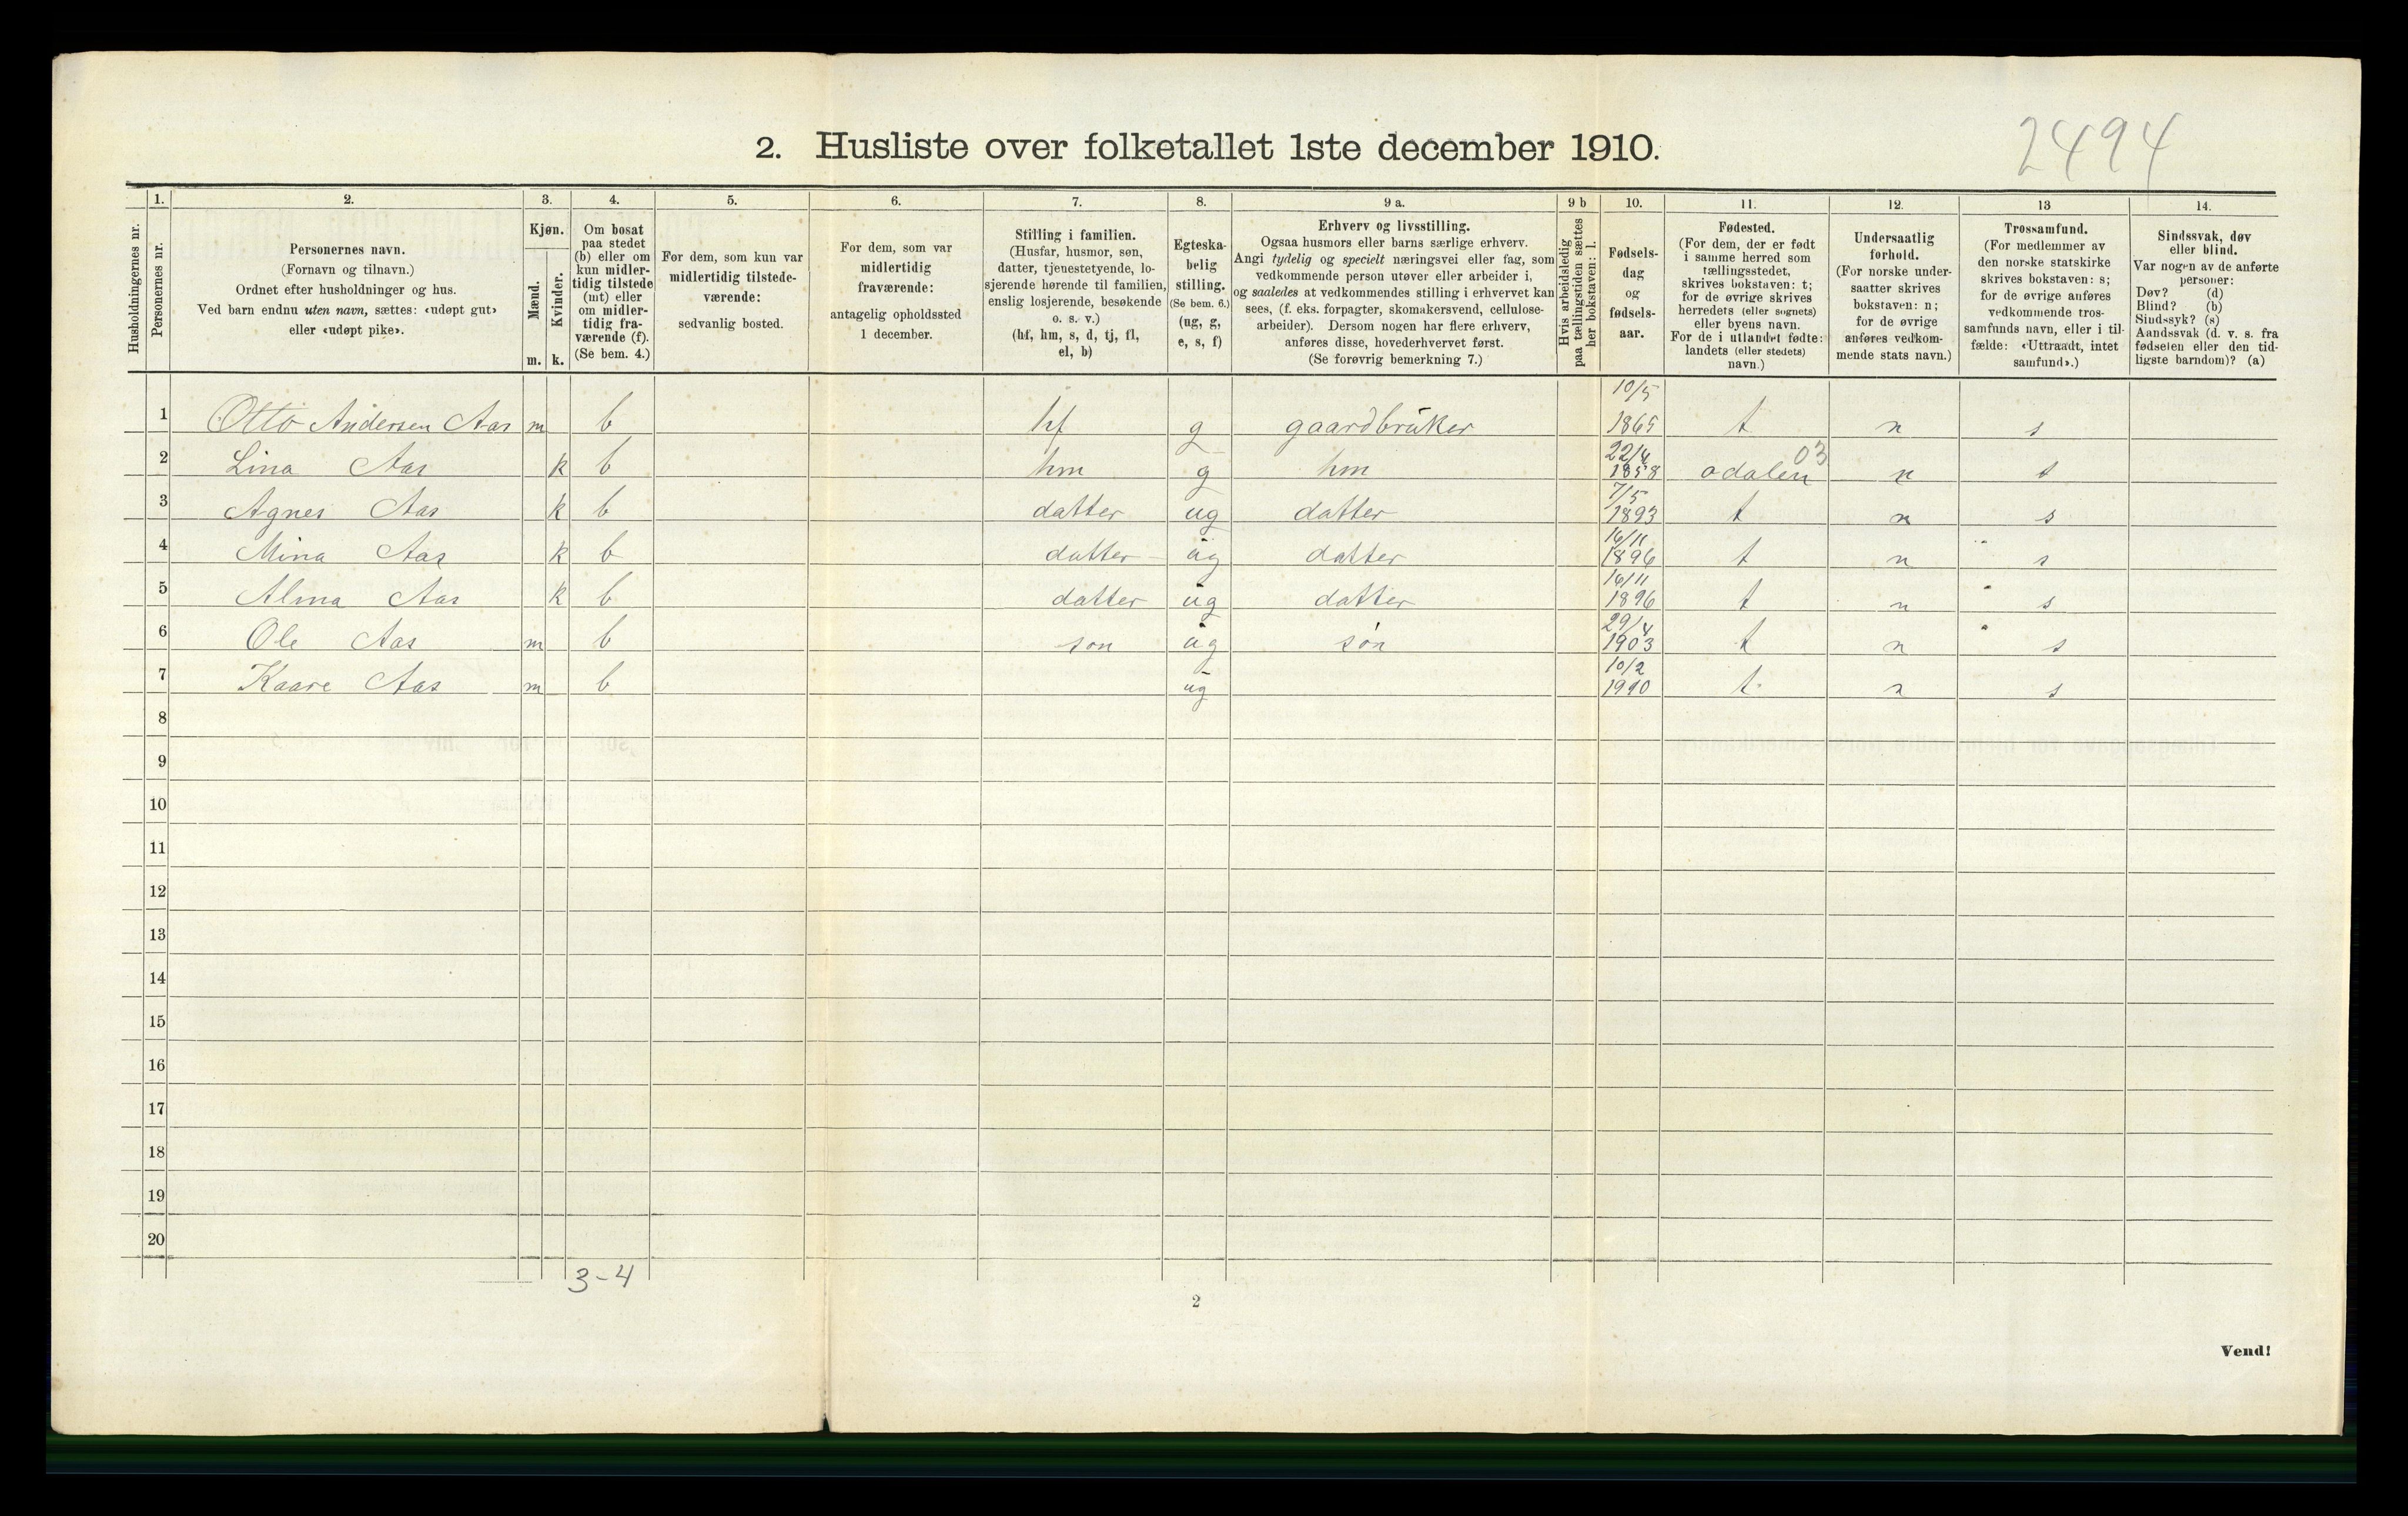 2494
2. Husliste over folketallet 1ste december 1910.
Husholdningernes nr.
1.
Personernes nr.
2.
Personernes navn.
(Fornavn og tilnavn.)
Ordnet efter husholdninger og hus.
Ved barn endnu uten navn, sættes: «udøpt gut»
eller «udøpt pike».
3.
Kjøn.
Mænd.
m.
Kvinder.
k.
4.
Om bosat
paa stedet
(b) eller om
kun midler-
tidig tilstede
(mt) eller
om midler-
tidig fra-
værende (f).
(Se bem. 4.)
5.
For dem, som kun var
midlertidig tilstede-
værende:
sedvanlig bosted.
6.
For dem, som var
midlertidig
fraværende:
antagelig opholdssted
1 december.
7.
Stilling i familien.
(Husfar, husmor, søn,
datter, tjenestetyende, lo-
sjerende hørende til familien,
enslig losjerende, besøkende
o. s. v.)
(hf, hm, s, d, tj, fl,
el, b)
8.
Egteska-
belig
stilling.
(Se bem. 6.)
(ug, g,
e, s, f)
9 a.
Erhverv og livsstilling.
Ogsaa husmors eller barns særlige erhverv.
Angi tydelig og specielt næringsvei eller fag, som
vedkommende person utøver eller arbeider i,
og saaledes at vedkommendes stilling i erhvervet kan
sees, (f. eks. forpagter, skomakersvend, cellulose-
arbeider). Dersom nogen har flere erhverv,
anføres disse, hovederhvervet først.
(Se forøvrig bemerkning 7.)
9 b
Hvis arbeidsledig
paa tællingstiden sættes
her bokstaven: l.
10.
Fødsels-
dag
og
fødsels-
aar.
11.
Fødested.
(For dem, der er født
i samme herred som
tællingsstedet,
skrives bokstaven: t;
for de øvrige skrives
herredets (eller sognets)
eller byens navn.
For de i utlandet fødte:
landets (eller stedets)
navn.)
12.
Undersaatlig
forhold.
(For norske under-
saatter skrives
bokstaven: n;
for de øvrige
anføres vedkom-
mende stats navn.)
13
Trossamfund.
(For medlemmer av
den norske statskirke
skrives bokstaven: s;
for de øvrige anføres
vedkommende tros-
samfunds navn, eller i til-
fælde: «Uttraadt, intet
samfund».)
14.
Sindssvak, døv
eller blind.
Var nogen av de anførte
personer:
Døv? (d)
Blind? (b)
Sindssyk? (s)
Aandssvak (d. v. s. fra
fødselen eller den tid-
ligste barndom)? (a)
1 Otto Andersen Aas m b hf g gaardbruker 10/5 1865 t n s
2 Lina Aas k b hm g hm 22/4 1858 odalen 03 n s
3 Agnes Aas k b datter ug datter 7/5 1893 t n s
4 Mina Aas k b datter ug datter 16/11 1896 t n s
5 Alma Aas k b datter ug datter 16/11 1896 t n s
6 Ole Aas m b son ug søn 29/4 1903 t n s
7 Kaare Aas m b ug 10/2 1910 t n s
8
9
10
11
12
13
14
15
16
17
18
19
20
3-4
2
Vend!